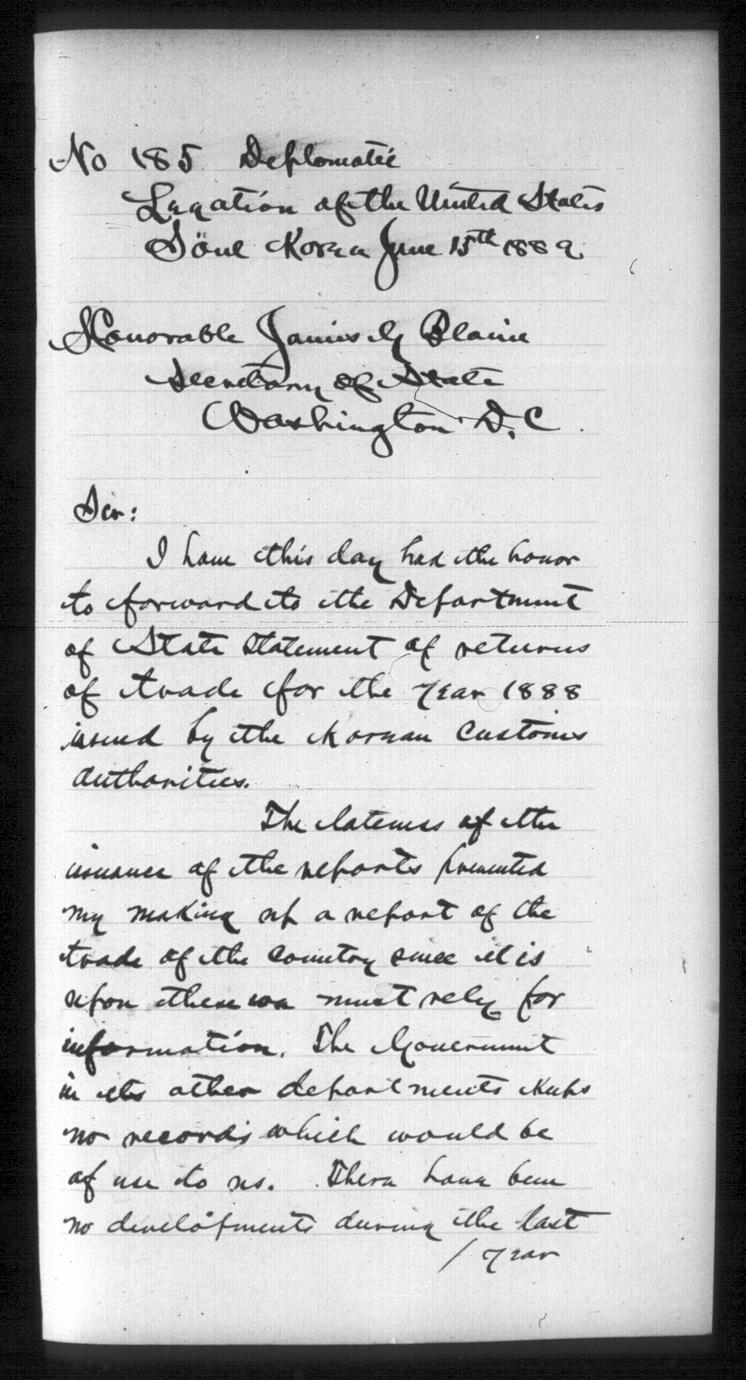 No 185 Diplomatic
Legation of the United States
Söul Korea June 15th 1889.
Honorable James G Blaine
Secretary of State
Washington D.C.
Sir:
I have this day had the honor
to forward to the Department
of State statement of returns
of trade for the year 1888
issued by the Korean Customs
authorities.
The lateness of the
issuance of the reports prevented
my making up a report of the
trade of the country since it is
upon these we must rely for
information. The Government
in its other departments keeps
no records which would be
of use to us. There have been
no developments during the last
/ year